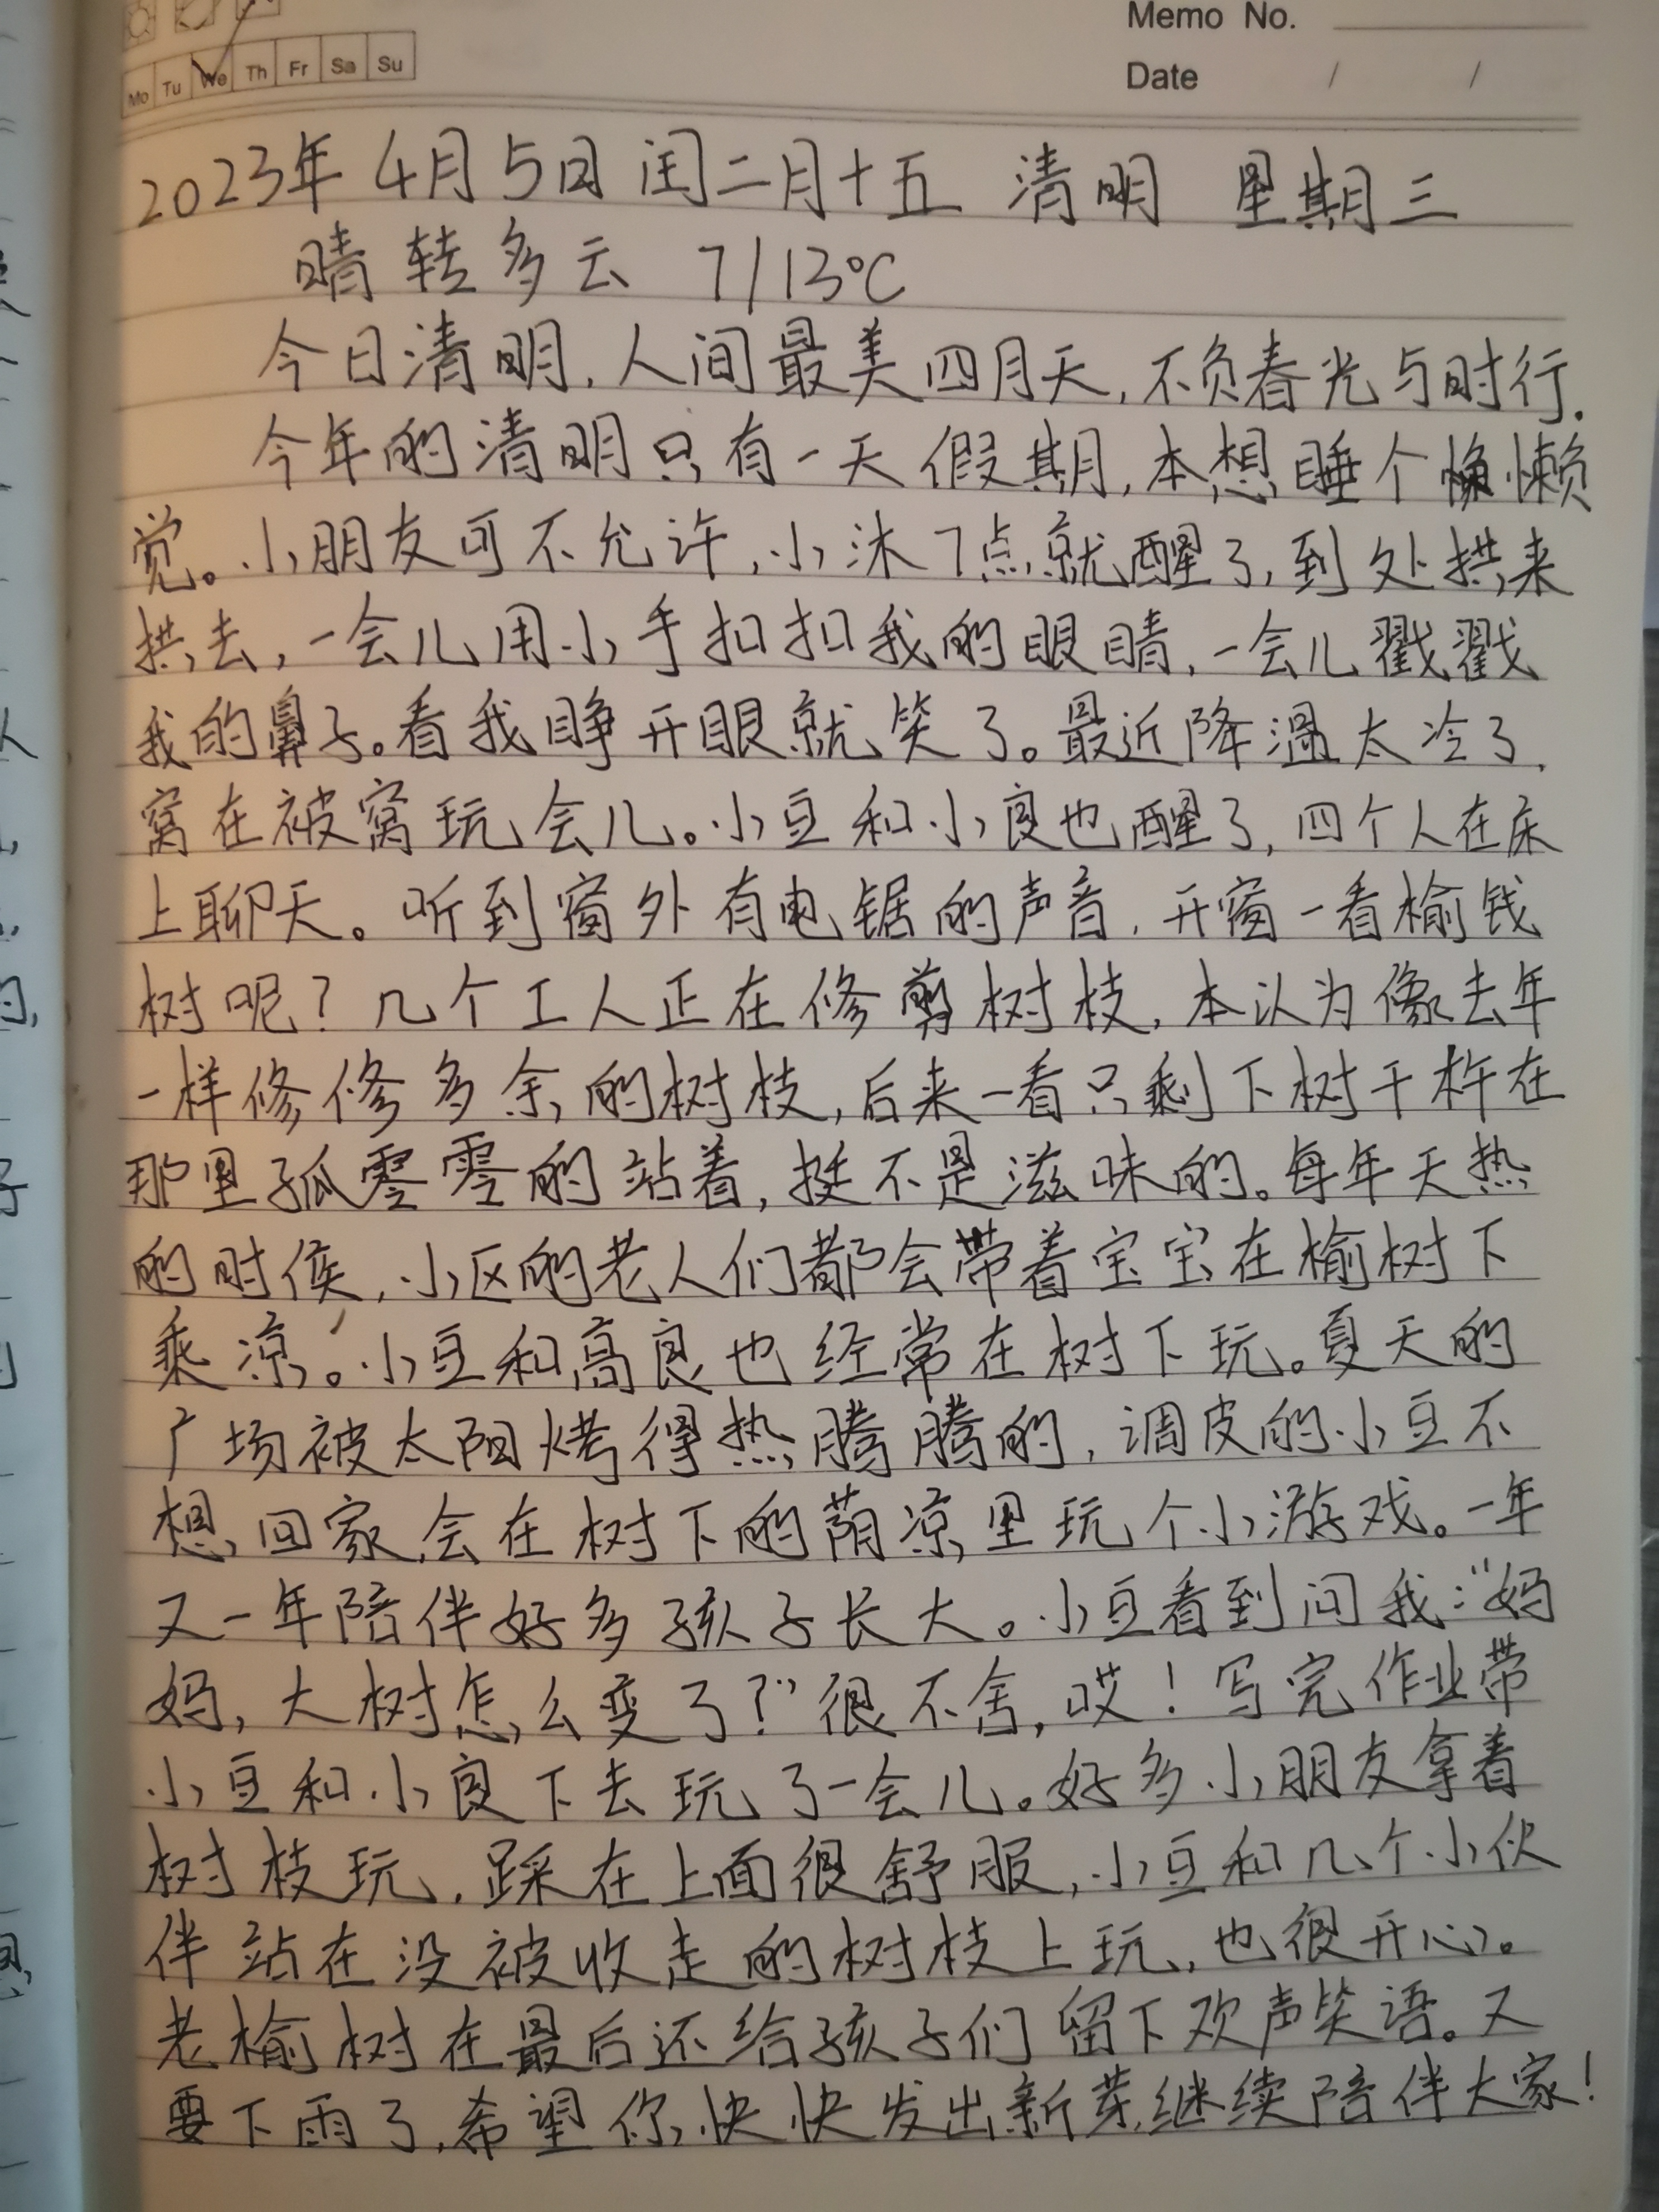 Memo No.
Mo Tu We Th Fr Sa Su
Date / /
2023年4月5日 闰二月十五 清明 星期三
晴转多云 7/13℃
今日清明,人间最美四月天,不负春光与时行.
今年的清明只有一天假期,本想睡个懒
觉。小朋友可不允许,小沐7点就醒了,到处拱来
拱去,一会儿用小手扣扣我的眼睛,一会儿戳戳
我的鼻子。看我睁开眼就笑了。最近降温太冷了,
窝在被窝玩会儿。小豆和小良也醒了,四个人在床
上聊天。听到窗外有电锯的声音,开窗一看榆钱
树呢?几个工人正在修剪树枝,本认为像去年
一样修修多余的树枝,后来一看只剩下树干杵在
那里孤零零的站着,挺不是滋味的。每年天热
的时候,小区的老人们都会带着宝宝在榆树下
乘凉。小豆和高良也经常在树下玩。夏天的
广场被太阳烤得热腾腾的,调皮的小豆不
想回家,会在树下的荫凉里玩个小游戏。一年
又一年陪伴好多孩子长大。小豆看到问我:"妈
妈,大树怎么变了?"很不舍,哎!写完作业带
小豆和小良下去玩了一会儿。好多小朋友拿着
树枝玩,踩在上面很舒服,小豆和几个小伙
伴站在没被收走的树枝上玩,也很开心。
老榆树在最后还给孩子们留下欢声笑语。又
要下雨了,希望你快快发出新芽,继续陪伴大家!